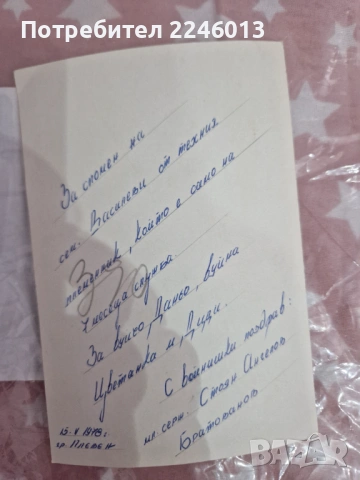 Потребител 2246013
За спомен на
сем. Василеви от техния
племенник, който е само на
7 месеца служба.
За вуйчо Данчо, вуйна
Цветанка и Диди.
С войнишки поздрав:
мл. серж. Стоян Ангелов
Братованов
гр. Плевен
BAZAR